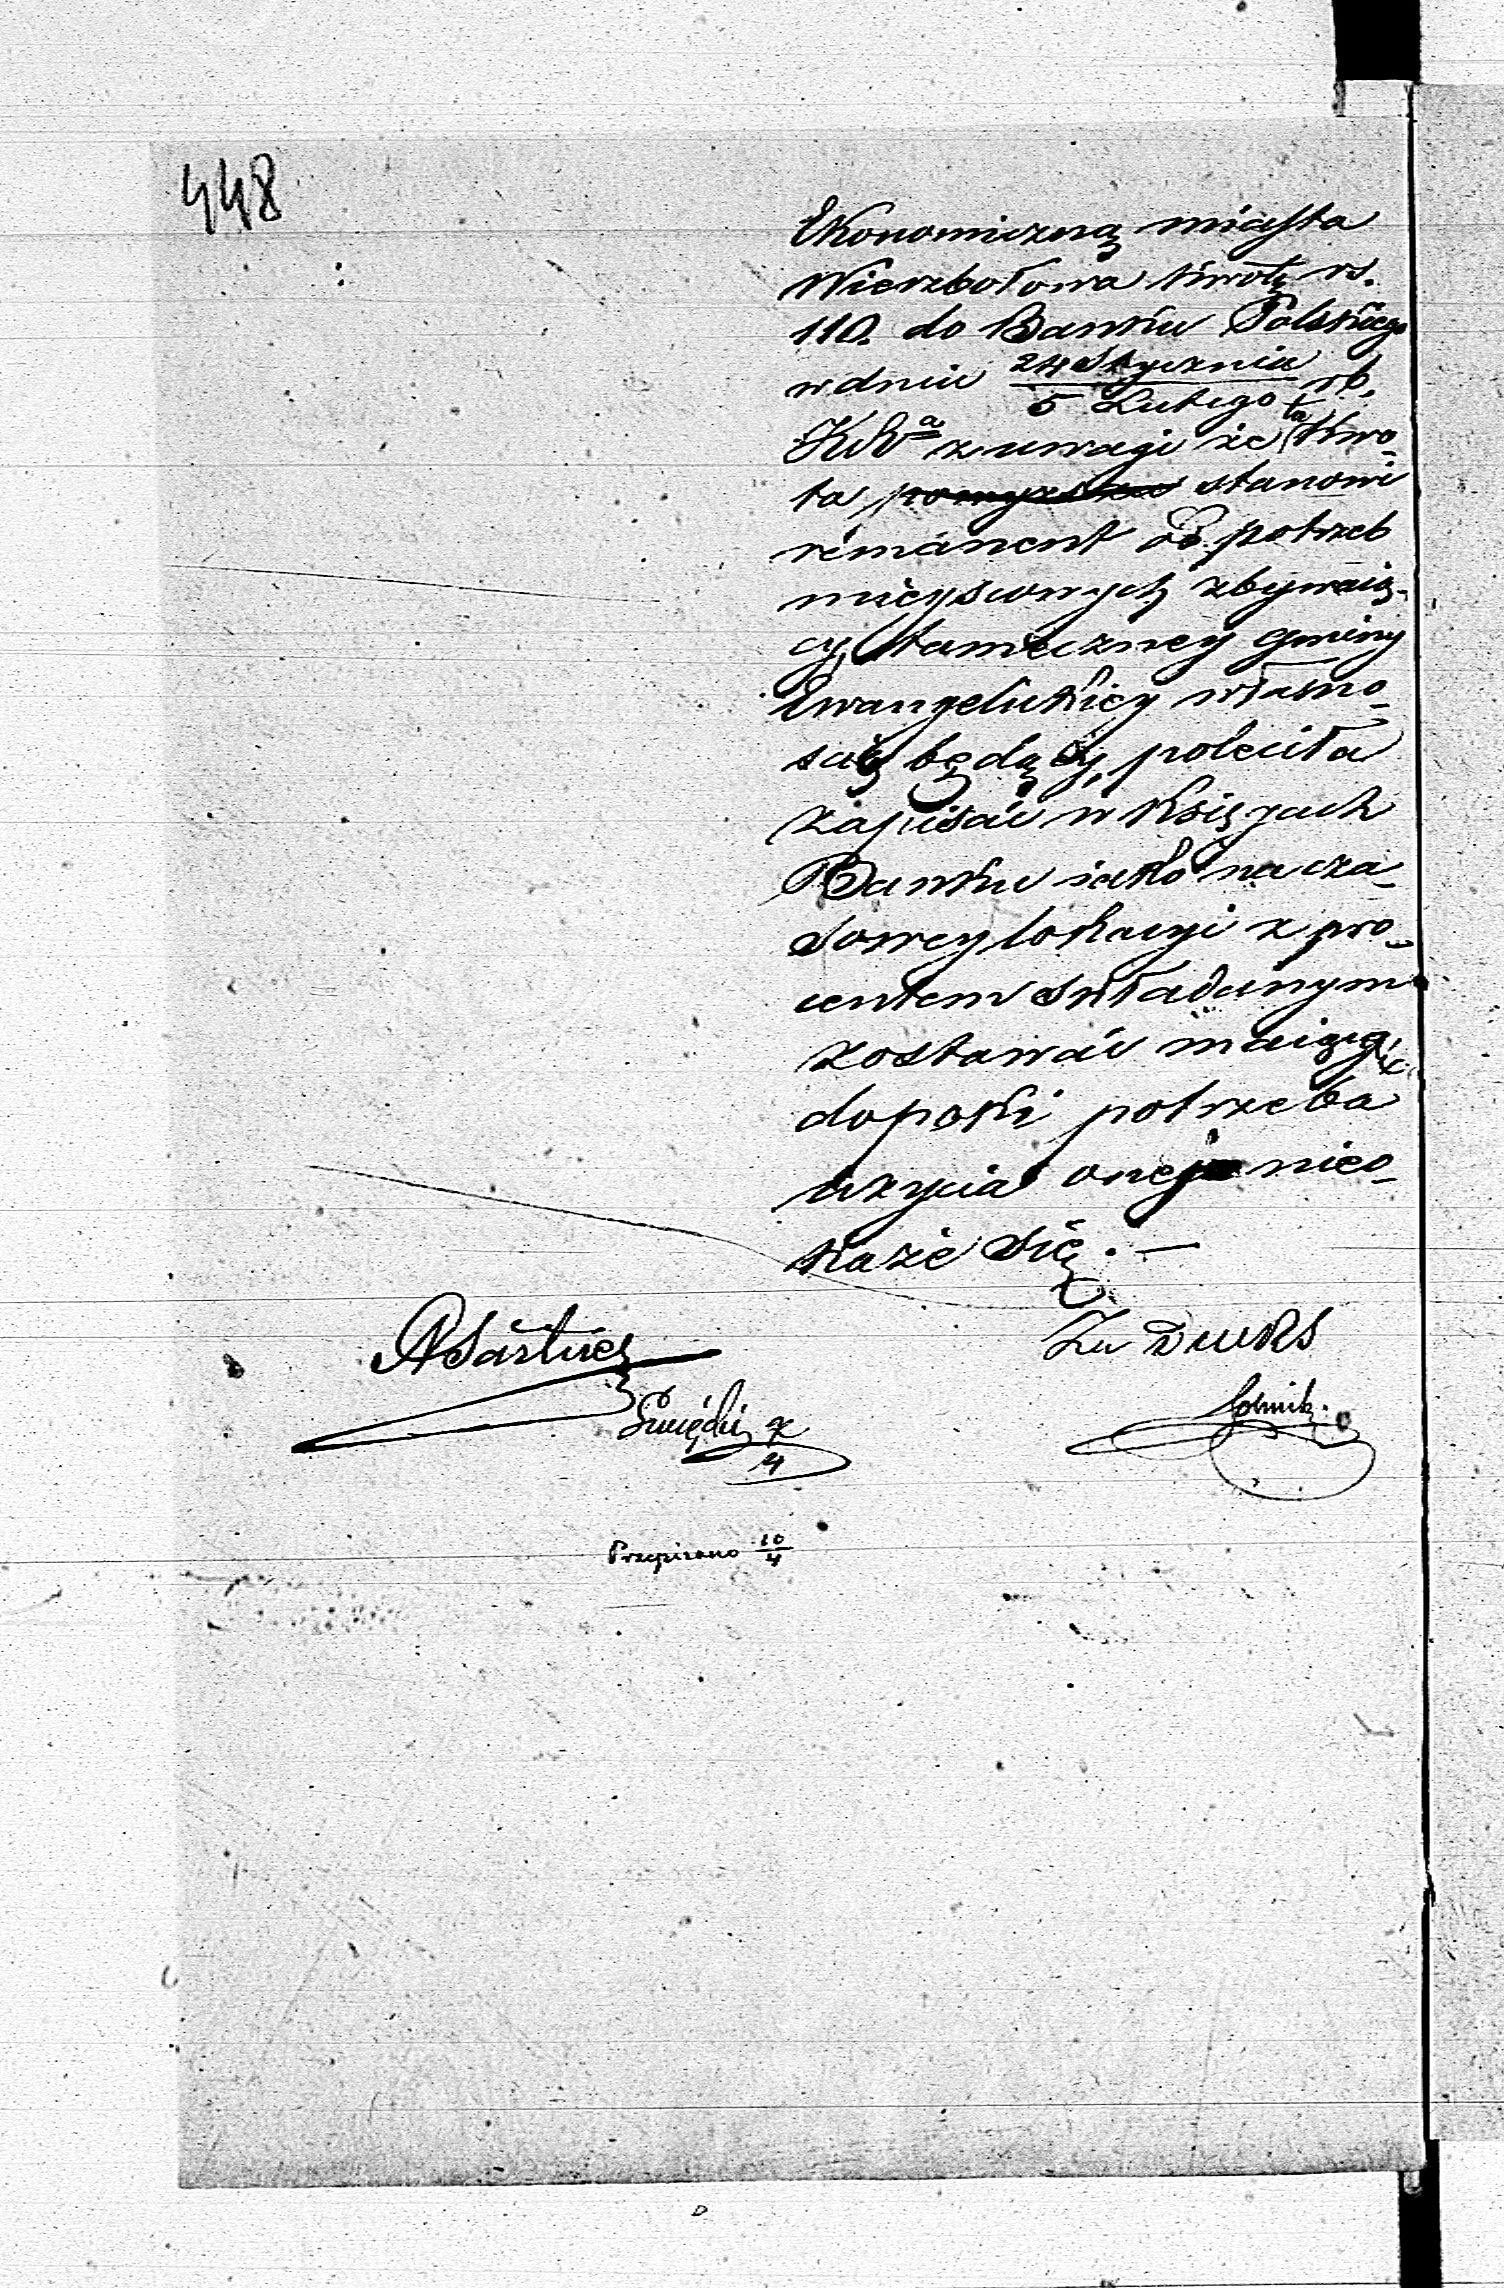 448
Ekonomiczną miasta
Wierzbołowa kwotę rs.
110. do Banku Polskiego
w dniu 24 Stycznia
5 Lutego rb.
z uwagi że ta kwo-
ta stanowi
remanent od potrzeb
mieyscowych zbywaią-
cy, tameczney gminy
Ewangelickiey własno-
ścią będący, poleciła
zapisać w Księgach
Banku iako na cza-
sowey lokacyi z pro-
centem składanym
zostawać maiącą,
dopoki potrzeba
użycia onej nieo-
każe się. —
Przepisano 10/4